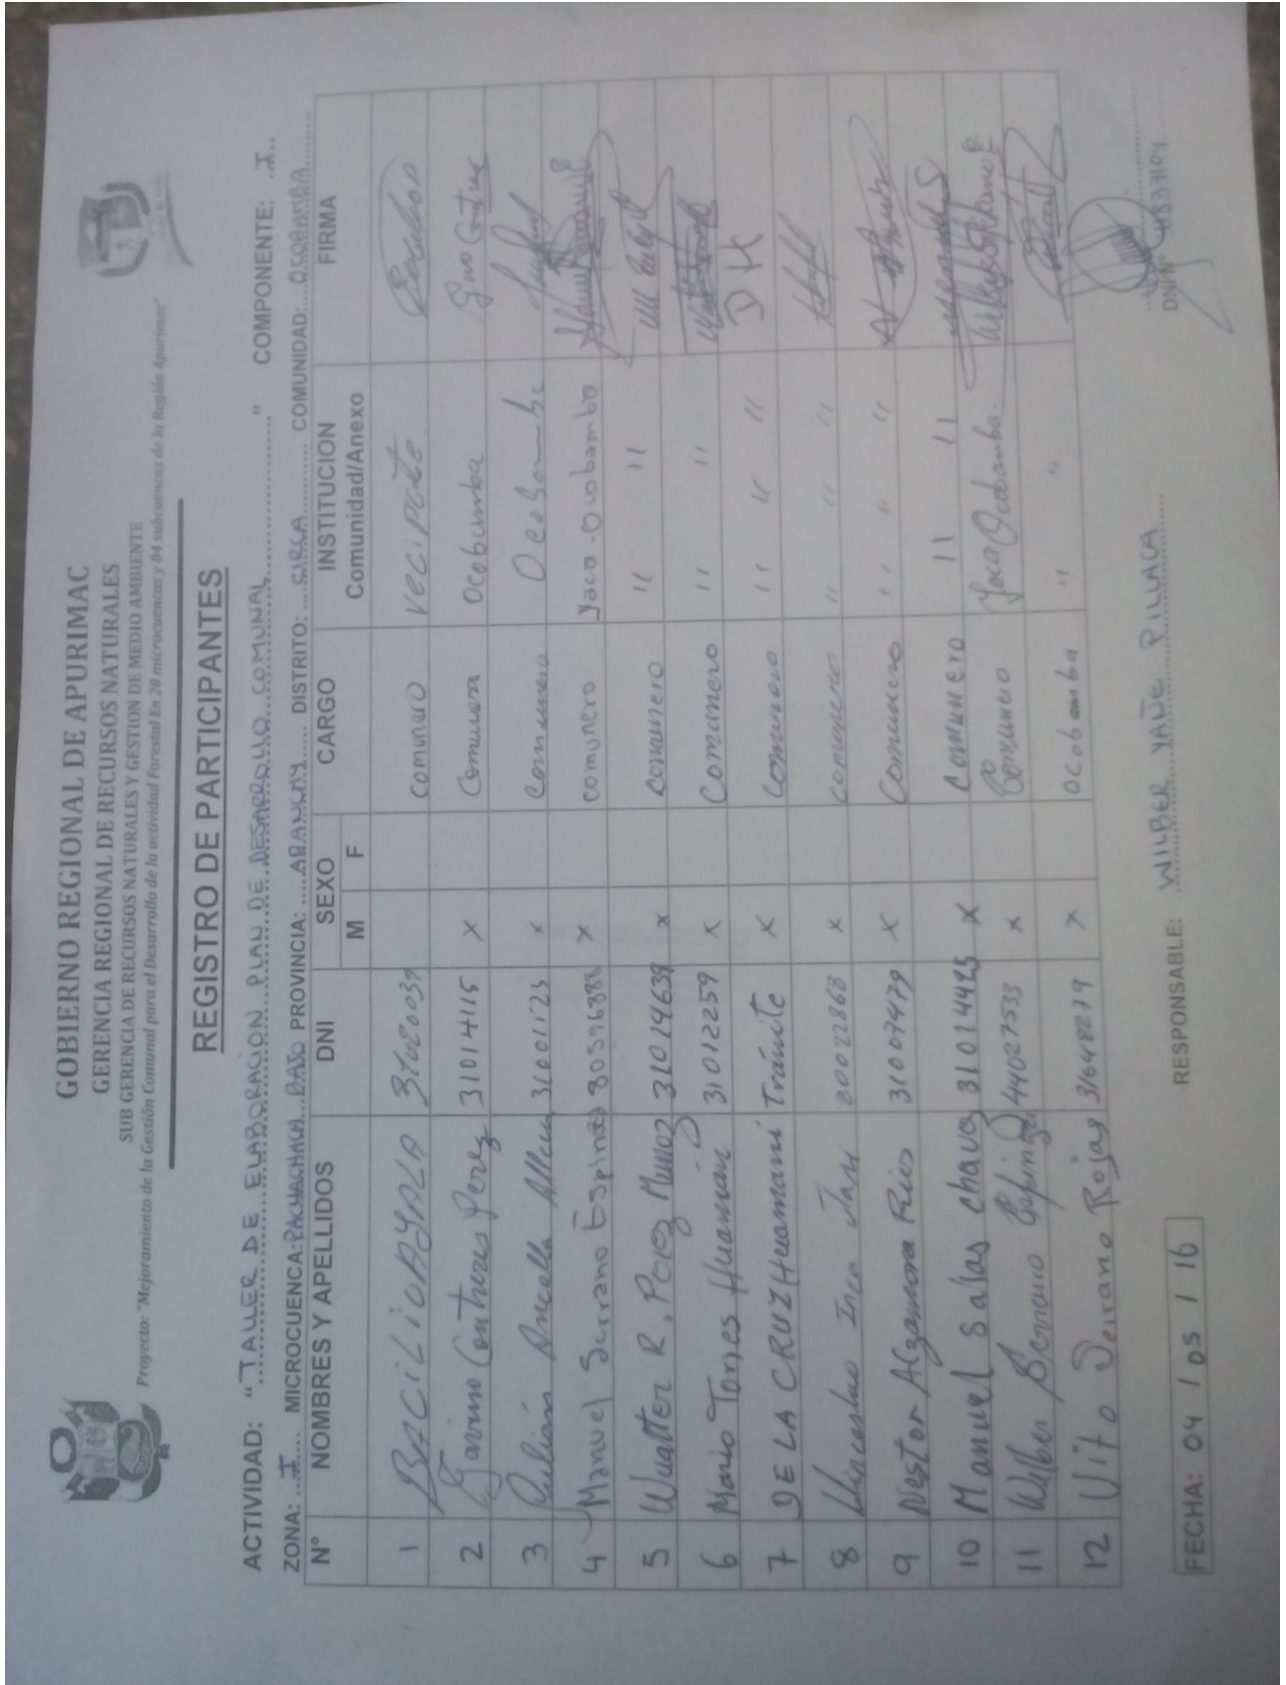 GOBIERNO REGIONAL DE APURIMAC
GERENCIA REGIONAL DE RECURSOS NATURALES
SUB GERENCIA DE RECURSOS NATURALES Y GESTION DE MEDIO AMBIENTE
Proyecto: "Mejoramiento de la Gestión Comunal para el Desarrollo de la actividad Forestal En 20 microcuencas y 04 subcuencas de la Región Apurimac"
REGISTRO DE PARTICIPANTES
ACTIVIDAD: "TALLER DE ELABORACION PLAN DE DESARROLLO COMUNAL" COMPONENTE: I
ZONA: I MICROCUENCA: PACHACHACA BAJO PROVINCIA: ABANCAY DISTRITO: CIRCA COMUNIDAD: OCOBAMBA
N° NOMBRES Y APELLIDOS DNI SEXO M F CARGO INSTITUCION Comunidad/Anexo FIRMA
1 BACILIO AYALA comunero
2 Gavino Contreras Perez 31014115 X Comunero Ocobamba
3 Julián Ancella 31001123 x Comunero Ocobamba
4 Manuel Serrano Espinoza 80596388 x comunero Yaca-Ocobamba
5 Wualter R. Perez Munoz 31014639 x comunero " "
6 Mario Torres Huaman 31012259 x Comunero " "
7 DE LA CRUZ Huamani Trámite X Comunero " " " D H
8 Inca 80022868 x comunero " " "
9 Nestor Alzamora Rios 31007479 X Comunero " " "
10 Manuel Salas chavez 31014425 x comunero " "
11 Wilber Serrano Espinoza 44027533 x Comunero Yaca Ocobamba.
12 Vito Serrano Rojas 31648279 x Ocobamba " "
FECHA: 04 / 05 / 16 RESPONSABLE: WILBER YAÑE PILLACA
DNI N°